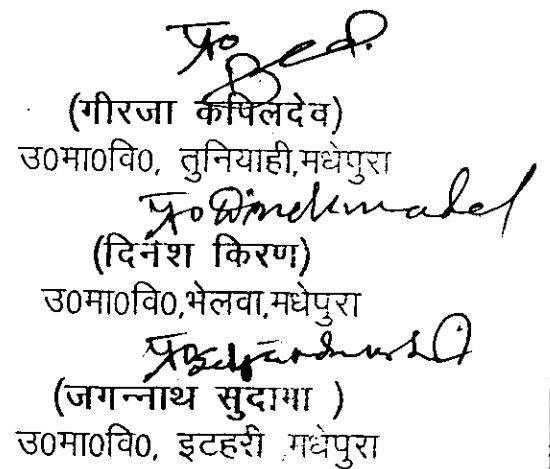 प्र०
(गीरजा कपिलदेव)
उ०मा०वि०, तुनियाही,मधेपुरा
प्र०
(दिनेश किरण)
उ०मा०वि०,भेलवा,मधेपुरा
प्र०
(जगन्नाथ सुदामा )
उ०मा०वि०, इटहरी मधेपुरा